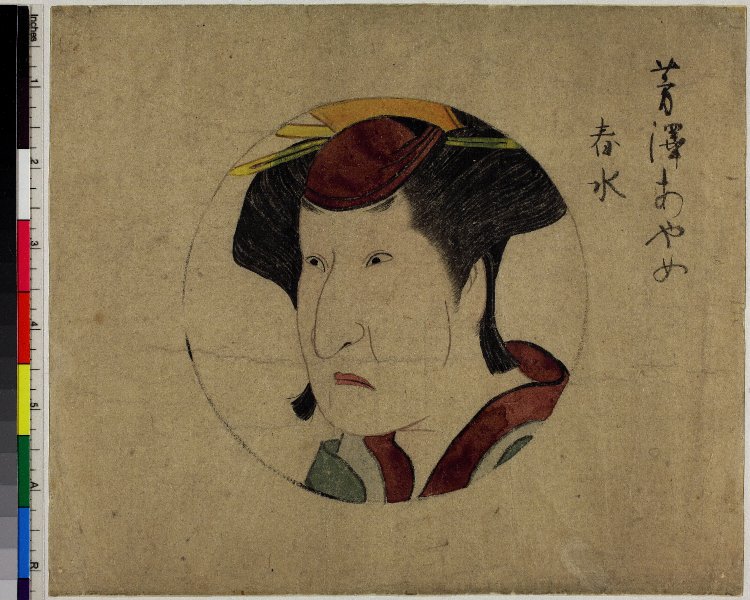 芳澤あやめ
春水
Inches
1
2
3
4
5
A
R